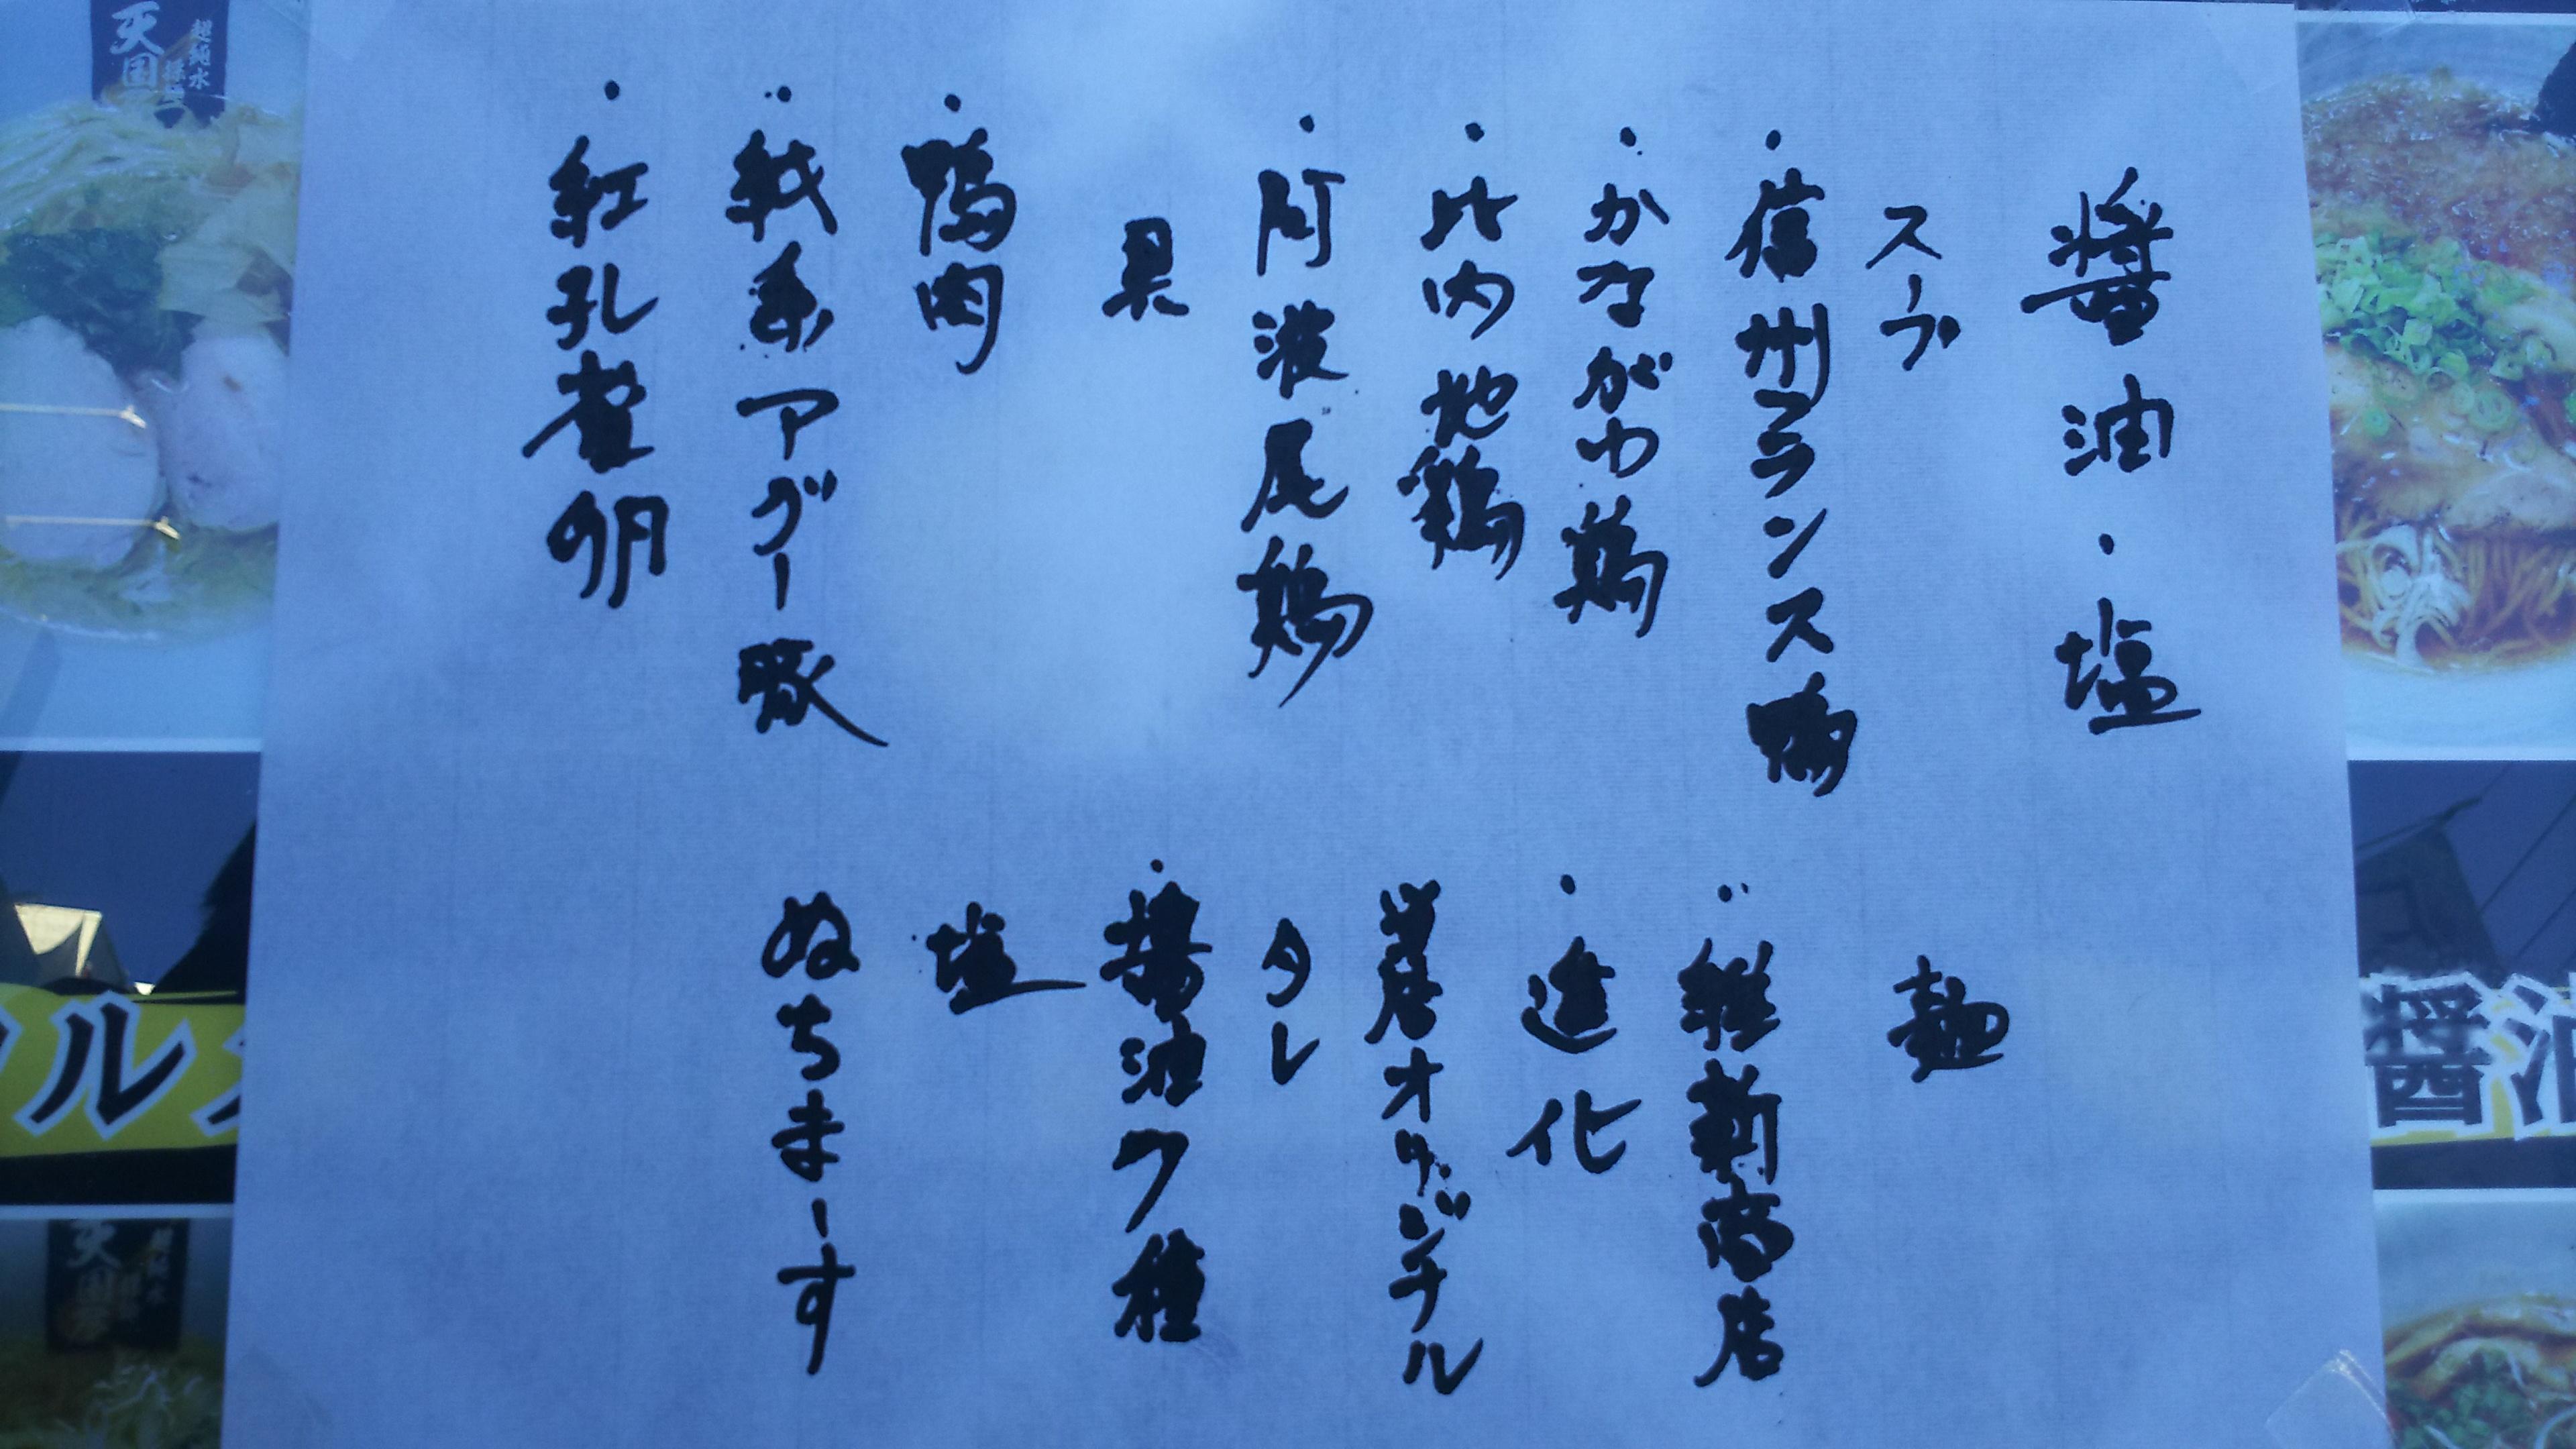 醤油・塩
スープ
・信州フランス鴨
・かながわ鶏
・比内地鶏
・阿波尾鶏
具
・鴨肉
・純系アグー豚
・紅孔雀卵
麺
・維新商店
・進化
當店オリジナル
タレ
・醤油ワ種
塩
ぬちまーす
天国
超純水
採麺
ルメ
醤油